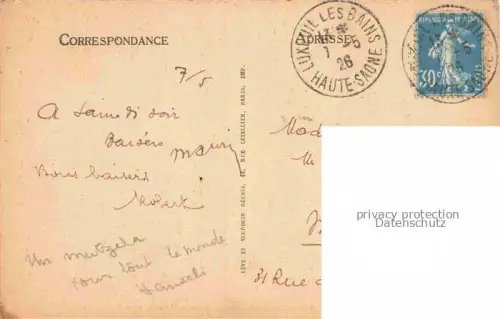 CORRESPONDANCE
ADRESSE
LUXEUIL LES BAINS
7 -5
26
HAUTE-SAONE
30c
7/5
A Samedi soir
Baisers
Bons baisers
Robert
Un
pour tout le monde
LÉVY ET NEURDEIN RÉUNIS, 44, RUE LETELLIER, PARIS, IMP.
Mad
M
31 Rue
privacy protection
Datenschutz